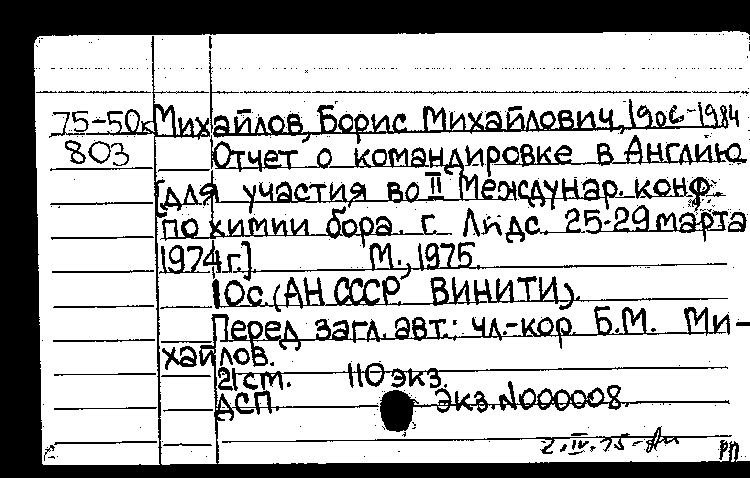 75-50к Михайлов, Борис Михайлович, 1906-1984
803 Отчет о командировке в Англию
[для участия во II Междунар. конф.
по химии бора. г. Лидс. 25-29 марта
1974 г.] М., 1975.
10с. (АН СССР. ВИНИТИ).
Перед загл. авт.: чл.-кор. Б.М. Ми-
хайлов.
21 см. 110 экз.
ДСП. Экз. №000008.
2.IV.75 РП